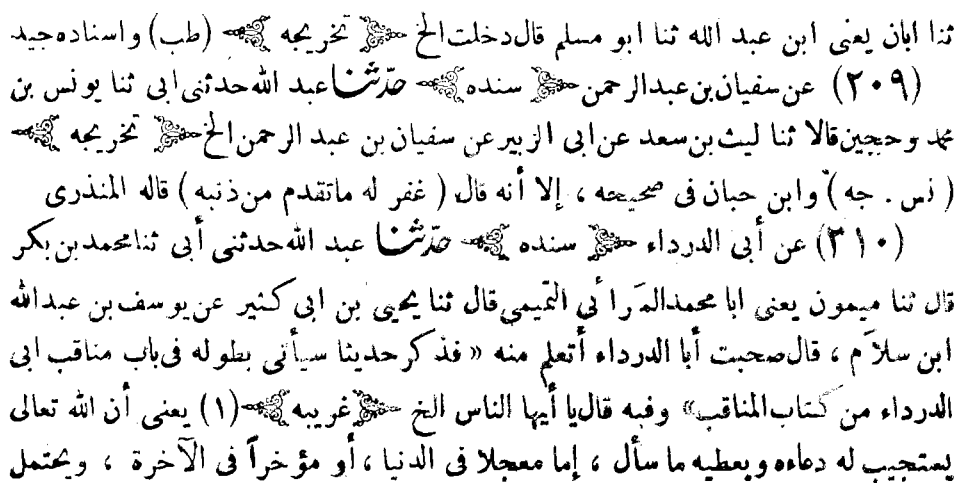 ثنا ابان يعنى ابن عبد الله ثنا ابو مسلم قال دخلت الخ تخريجه (طب) واسناده جيد
(٢٠٩) عن سفيان بن عبد الرحمن سنده حدّثنا عبد الله حدثنى ابى ثنا يونس بن
محمد وحجين قالا ثنا ليث بن سعد عن ابى الزبير عن سفيان بن عبد الرحمن الخ تخريجه
( نس . جه ) وابن حبان فى صحيحه ، إلا أنه قال ( غفر له ماتقدم من ذنبه ) قاله المنذرى
(٣١٠) عن أبى الدرداء سنده حدّثنا عبد الله حدثنى أبى ثنا محمد بن بكر
قال ثنا ميمون يعنى ابا محمد المرائى التميمى قال ثنا يحيى بن ابى كثير عن يوسف بن عبد الله
ابن سلام ، قال صحبت أبا الدرداء أتعلم منه « فذكر حديثا سيأتى بطوله فى باب مناقب ابى
الدرداء من كتاب المناقب» وفيه قال يا أيها الناس الخ غريبه (١) يعنى أن الله تعالى
يستجيب له دعاءه ويعطيه ما سأل ، إما معجلا فى الدنيا ، أو مؤخراً فى الآخرة ، ويحتمل